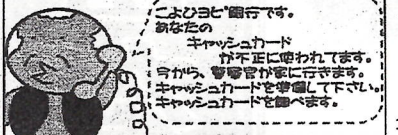 こよひヨピ銀行です。
あなたの
キャッシュカード
が不正に使われてます。
今から、警察官が家に行きます。
キャッシュカードを準備して下さい。
キャッシュカードを調べます。